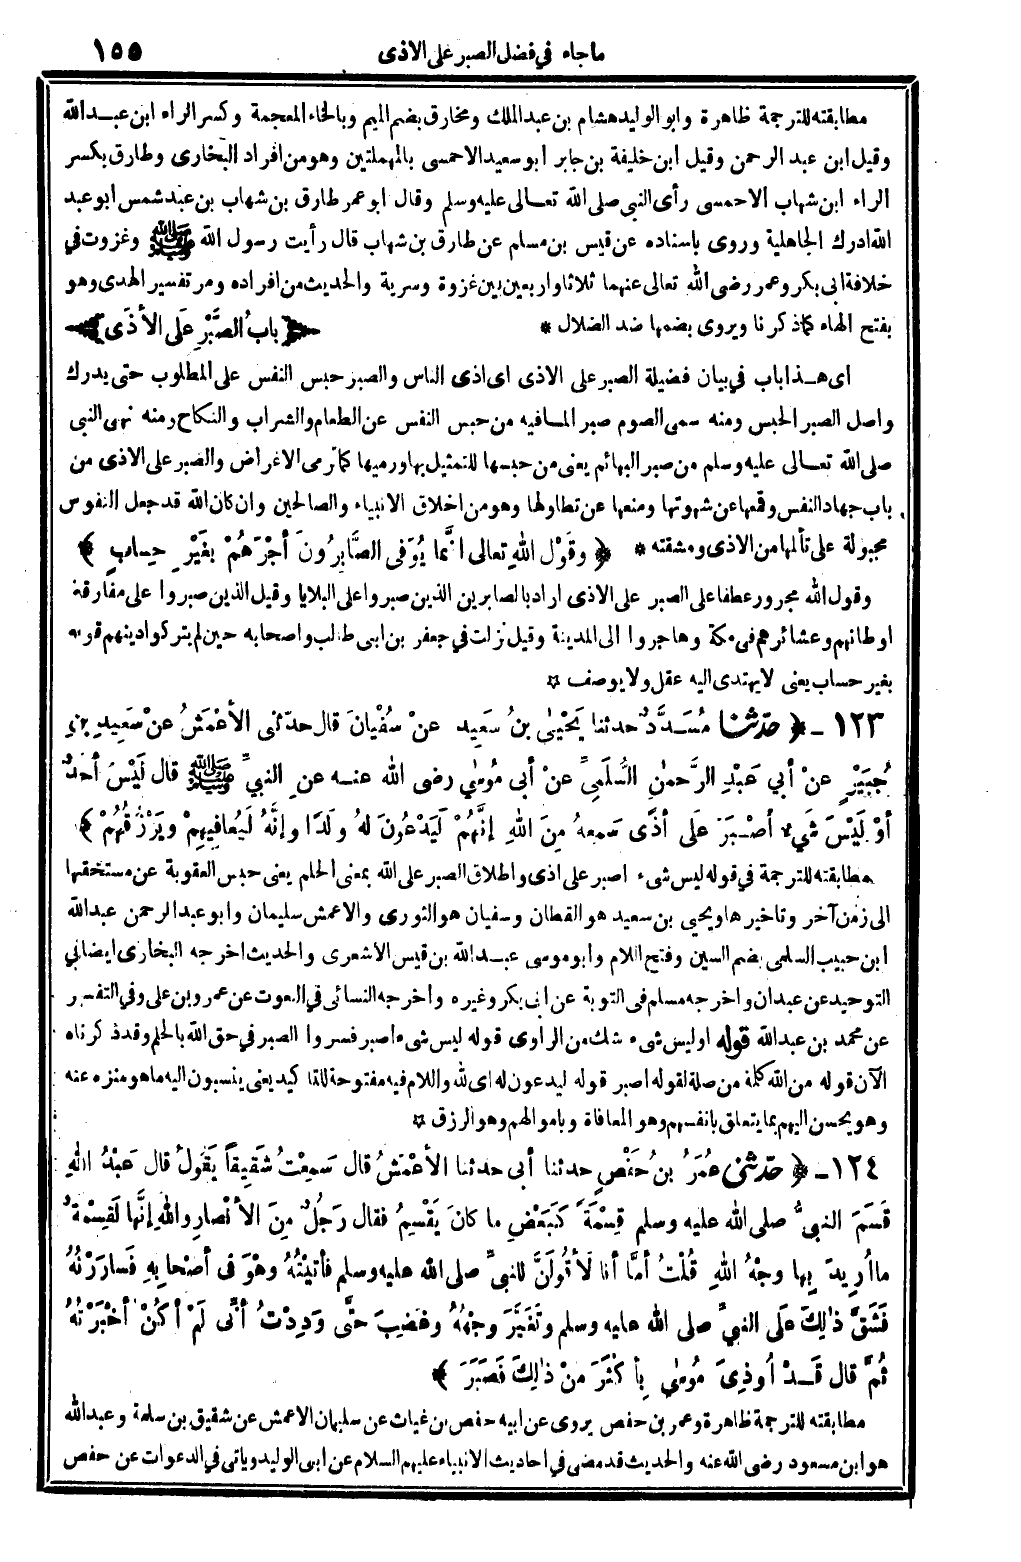 ماجاء في فضل الصبر على الاذى ١٥٥
مطابقته للترجمة ظاهرة وابو الوليد هشام بن عبد الملك ومخارق بضم الميم وبالخاء المعجمة وكسر الراء ابن عبد الله
وقيل ابن عبد الرحمن وقيل ابن خليفة بن جابر ابو سعيد الاحمسى بالمهملتين وهو من افراد البخارى وطارق بكسر
الراء ابن شهاب الاحمسى رأى النبي صلى الله تعالى عليه وسلم وقال ابو عمر طارق بن شهاب بن عبد شمس ابو عبد
الله ادرك الجاهلية وروى باسناده عن قيس بن مسلم عن طارق بن شهاب قال رأيت رسول الله ﷺ وغزوت في
خلافة ابى بكر وعمر رضى الله تعالى عنهما ثلاثا واربعين بين غزوة وسرية والحديث من افراده ومر تفسير الهدى وهو
بفتح الهاء كما ذكرنا ويروى بضمها ضد الضلال * ﴿ بابُ الصَّبْرِ عَلَى الأذَى ﴾
اى هـذا باب في بيان فضيلة الصبر على الاذى اى اذى الناس والصبر حبس النفس على المطلوب حتى يدرك
واصل الصبر الحبس ومنه سمى الصوم صبرا لما فيه من حبس النفس عن الطعام والشراب والنكاح ومنه نهى النبي
صلى الله تعـالى عليه وسلم من صبر البهائم يعنى من حبسها للتمثيل بها ورميها كما ترمى الاغراض والصبر على الاذى من
باب جهاد النفس وقمعها عن شهوتها ومنعها عن تطاولها وهو من اخلاق الانبياء والصالحين وان كان الله قد جعل النفوس
مجبولة على تألمها من الاذى ومشقته * ﴿ وقَوْلِ اللهِ تعالى انَّما يُوَفى الصَّابِرُونَ أجْرَهُمْ بغَيْرِ حِسابٍ ﴾
وقول الله مجرور عطفا على الصبر على الاذى اراد بالصابرين الذين صبروا على البلايا وقيل الذين صبروا على مفارقة
اوطانهم وعشائرهم في مكة وهاجروا الى المدينة وقيل نزلت في جعفر بن ابى طالب واصحابه حين لم يتركوا دينهم قوله
بغير حساب يعنى لا يهتدى اليه عقل ولا يوصف ☆
١٢٣ ـ ﴿ حدّثنا مُسَـدَّدٌ حدثنا يَحْيَى بنُ سَعِيدٍ عنْ سُفْيانَ قال حدّثنى الأعْمَشُ عنْ سَعِيدِ بنِ
جُبَيْرٍ عنْ أبي عَبْدِ الرَّحمٰنِ السُّلَمِيِّ عنْ أبى مُوسَى رضى الله عنـه عنِ النبيِّ ﷺ قال لَيْسَ أحَدٌ
أوْ لَيْسَ شَيءٌ أصْـبَرَ عَلَى أذًى سَمِعهُ مِنَ اللهِ إنَّهُمْ لَيَدْعُونَ لهُ ولَدًا وإنَّهُ لَيُعافِيهِمْ ويَرْزُقُهُمْ ﴾
مطابقته للترجمة في قوله ليس شىء اصبر على اذى واطلاق الصبر على الله بمعنى الحلم يعنى حبس العقوبة عن مستحقها
الى زمن آخر وتاخيرها ويحيى بن سعيد هو القطان وسفيان هو الثورى والاعمش سليمان وابو عبد الرحمن عبد الله
ابن حبيب السلمى بضم السين وفتح اللام وابو موسى عبـد الله بن قيس الاشعرى والحديث اخرجه البخارى ايضا في
التوحيد عن عبدان واخرجه مسلم في التوبة عن ابى بكر وغيره واخرجه النسائى في النعوت عن عمرو بن على وفي التفسير
عن محمد بن عبد الله قوله او ليس شىء شك من الراوى قوله ليس شىء اصبر فسروا الصبر في حق الله بالحلم وقد ذكرناه
الآن قوله من الله كلمة من صلة لقوله اصبر قوله ليدعون له اى لله واللام فيه مفتوحة للتاكيد يعنى ينسبون اليه ما هو منزه عنه
وهو يحسن اليهم بما يتعلق بانفسهم وهو المعافاة وباموالهم وهو الرزق ☆
١٢٤ ـ ﴿ حدّثنى عُمَرُ بنُ حَفْصٍ حدثنا أبى حدثنا الأعْمَشُ قال سَمِعْتُ شَقِيقاً يَقُولُ قال عَبْدُ اللهِ
قَسَمَ النبيُّ صلى الله عليه وسلم قِسْمَةً كَبَعْضِ ما كانَ يَقْسِمُ فقال رَجُلٌ مِنَ الأنْصارِ واللهِ إنَّها لَقِسْمةٌ
ما أُرِيدَ بِها وجْهُ اللهِ قُلْتُ أمَّا أنا لَأقُولَنَّ للنبيِّ صلى الله عليه وسلم فأتَيْتُهُ وهْوَ فى أصْحابِهِ فَسارَرْتُهُ
فَشَقَّ ذٰلِكَ عَلَى النبيِّ صلى الله عليه وسلم وتَغَيَّرَ وجْهُهُ وغَضِبَ حتَّى وَدِدْتُ أنِّى لَمْ أكُنْ أخْبَرْتُهُ
ثُمَّ قال قَـدْ أُوذِىَ مُوسٰى بِأكْثَرَ مِنْ ذٰلِكَ فَصَبَرَ ﴾
مطابقته للترجمة ظاهرة وعمر بن حفص يروى عن ابيه حفص بن غياث عن سليمان الاعمش عن شقيق بن سلمة وعبد الله
هو ابن مسعود رضى الله عنه والحديث قد مضى في احاديث الانبياء عليهم السلام عن ابى الوليد وياتى في الدعوات عن حفص